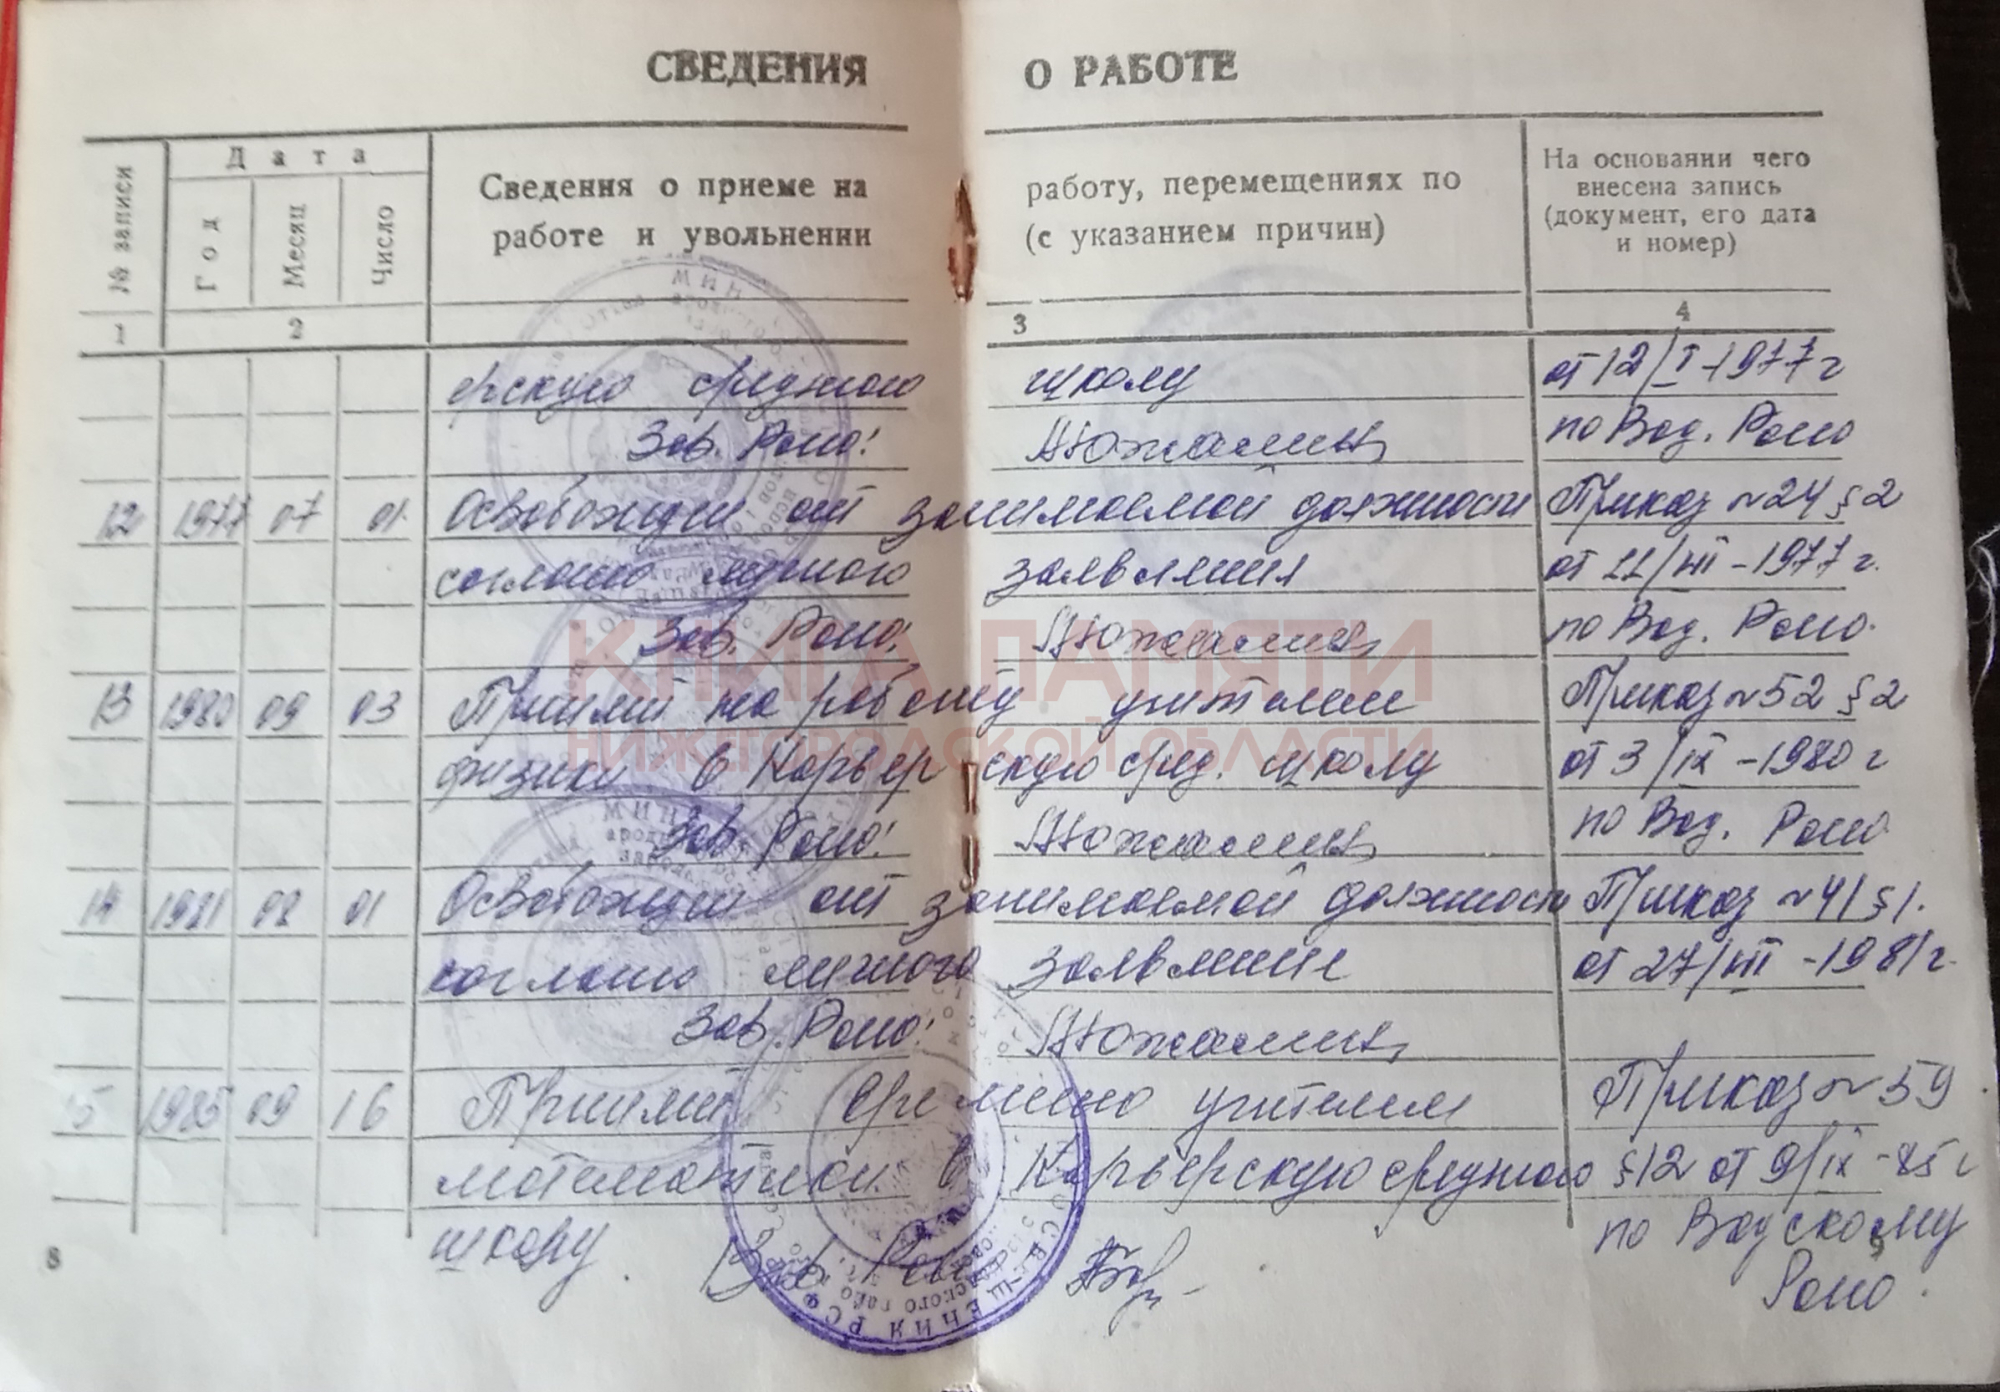 СВЕДЕНИЯ О РАБОТЕ
№ записи
Дата
Год
Месяц
Число
Сведения о приеме на работу, перемещениях по
работе и увольнении (с указанием причин)
На основании чего
внесена запись
(документ, его дата
и номер)
1 2 3 4
ерскую среднюю школу от 12/I-1977 г
Зав. Роно: по Вад. Роно
12 1977 07 01 Освобожден от занимаемой должности Приказ №24 §2
согласно личного заявления от 11/VII-1977 г.
Зав. Роно: по Вад. Роно.
13 1980 09 03 Принят на работу учителем Приказ №52 §2
физики в Карьерскую сред. школу от 3/IX-1980 г
Зав. Роно: по Вад. Роно
14 1981 02 01 Освобожден от занимаемой должности Приказ №41 §1.
согласно личного заявления от 27/VIII-1981 г.
Зав. Роно:
15 1985 09 16 Принят временно учителем Приказ №59
математики в Карьерскую среднюю §12 от 9/IX-85 г
школу. Зав. Роно по Вадскому
Роно.
8
КНИГА ПАМЯТИ
НИЖЕГОРОДСКОЙ ОБЛАСТИ